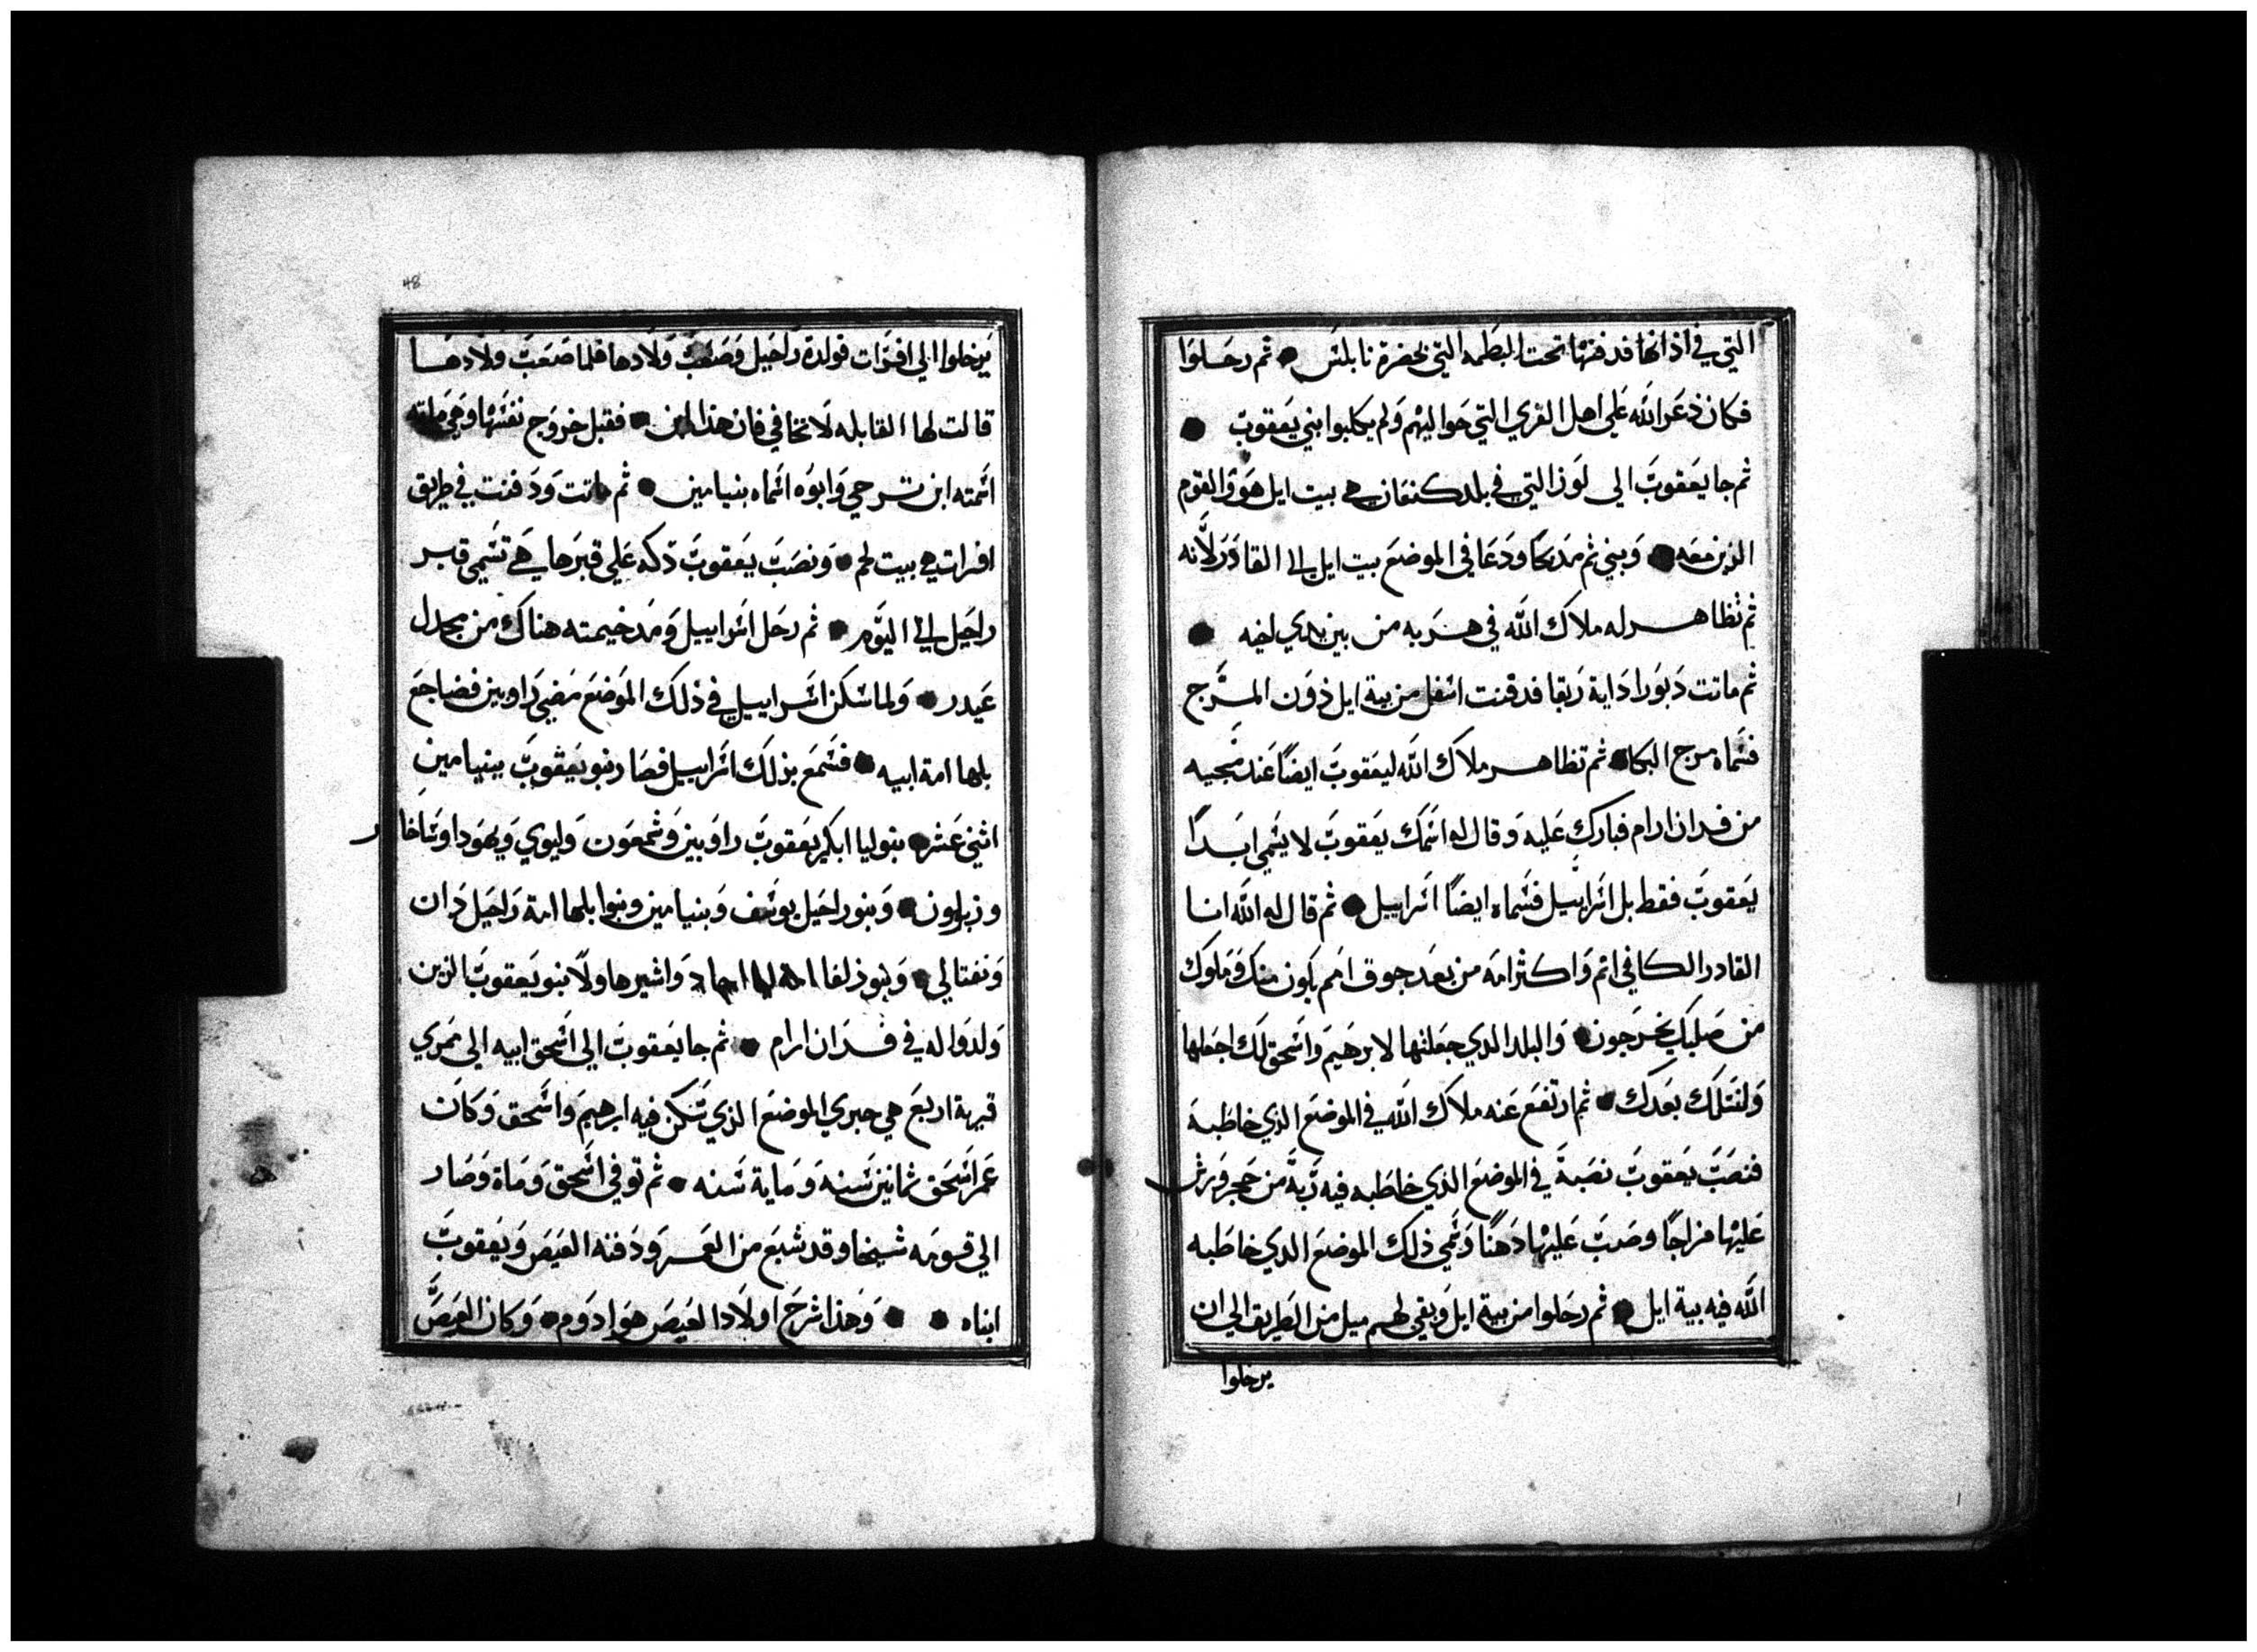 التي في اذانها فدفنها تحت البطمه التي بحضرة نابلس ● ثم رحلوا
فكان ذعر الله علي اهل القري التي حواليهم ولم يكلبوا بني يعقوب ●
ثم جا يعقوب الى لوز التي في بلد كنعان هي بيت ايل هو والقوم
الذين معه ● وبني ثم مدبحا ودعا في الموضع بيت ايل الي القادر لانه
ثم تظاهر له ملاك الله في هربه من بين يدي اخيه ●
ثم ماتت دبورا داية ربقا فدفنت اسفل من بية ايل دون المرج
فسماه مرج البكا ● ثم تظاهر ملاك الله ليعقوب ايضا عند مجيه
من فدان ارام فبارك عليه وقال له اسمك يعقوب لا يسمى ابدا
يعقوب فقط بل اسراييل فسماه ايضا اسراييل ● ثم قال له الله انا
القادر الكافي اثم واكثر امه من بعد جوق امم يكون منك وملوك
من صلبك يخرجون ● والبلد الدي جعلتها لابرهيم واسحق لك اجعلها
ولنسلك بعدك ● ثم ارتفع عنه ملاك الله في الموضع الدي خاطبه
فنصب يعقوب نصبة في الموضع الدي خاطبه فيه دبة من حجر ورش
عليها مزاجا وصب عليها دهنا وسمي ذلك الموضع الدي خاطبه
الله فيه بية ايل ● ثم رحلوا من بية ايل وبقي لهم ميل من الطريق الي ان
يرخلوا
48
يرخلوا الي افرات فولدة راحيل وصعب ولادها فلما صعب ولادها
قالت لها القابله لا تخافي فان هذا ابن ● فقبل خروج نفسها وهي مايته
اسمته ابن ترحي وابوه اسماه بنيامين ● ثم ماتت ودفنت في طريق
افرات هي بيت لحم ● ونصب يعقوب دكه علي قبرها هي تسمي قبر
راحيل الي اليوم ● ثم رحل اسراييل ومد خيمته هناك من مجدل
عيدر ● ولما سكن اسراييل في ذلك الموضع مضي راوبين فضاجع
بلها امة ابيه ● فسمع بذلك اسراييل فصار بنو يعقوب ببنيامين
اثني عشر ● بنو ليا ابكر يعقوب راوبين وشمعون وليوي ويهودا وساخار
وزبلون ● وبنو راحيل يوسف وبنيامين وبنوا بلها امة راحيل دان
ونفتالي ● وبنو ذلفا امة ليا جاد واشير هاولا بنو يعقوب الزين
ولدوا له في فدان ارام ● ثم جا يعقوب الي اسحق ابيه الي ممري
قرية اربع هي حبري الموضع الذي سكن فيه ابرهيم واسحق وكان
عمر اسحق ثمانين سنه وماية سنه ● ثم توفي اسحق وماة وصار
الي قومه شيخا وقد شبع من العمر ودفنه العيص ويعقوب
ابناه ● ● وهذا شرح اولاد العيص هو ادوم ● وكان العيص